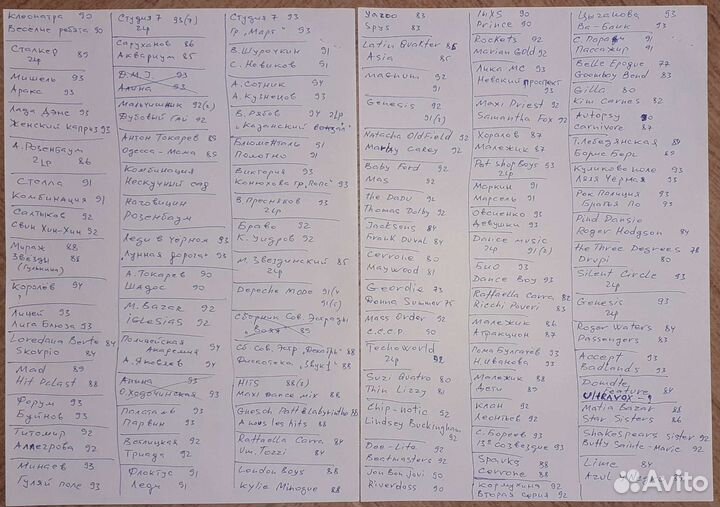 Клеопатра 90
Веселые ребята 90
Сталкер 89
2LP
Мишель 93
Аракс 93
Лада Дэнс 93
Женский каприз 93
А. Розенбаум
2LP 86
Стелла 91
Комбинация 91
Салтыков 92
Свин Хин-Хин 92
Мираж 88
Звёзды 88
(Гулькина)
Королёв 94
Лицей 93
Лига Блюза 93
Loredana Berte 84
Skorpio 84
Mad 89
Hit Palast 88
Форум 93
Буйнов 93
Титомир 92
Аллегрова 92
Минаев 93
Гуляй поле 93
Студия 7 93(?)
2LP
Саруханов 86
Аквариум 85
D.M.J 93
Алина 93
Мальчишник 92(2)
Дубовый Гай 92
Антон Токарев 89
Одесса-Мама 89
Комбинация
Нескучный сад
Ноговицин
Розенбаум
Леди в чёрном 93
"Лунная дорога" 93
А. Токарев 90
Шадос 90
M. Bazar 92
iGLESiAS 92
Полицейская
Академия 94
А. Яковлев 94
Алина 93
О. Ходочинская 93
Парвин 93
Весницкая 92
Триада 92
Фроктус 91
Леди 91
Студия 7 93
Гр. "Март" 93
В. Шурочкин 91
С. Новиков 91
А. Сотник 94
А. Кузнецов 93
В. Рябов 94 2LP
"Казанский вокзал"
Блюменталь 91
Полотно 91
Виктория 93
Конюхова гр. "Попс" 93
В. Пресняков 93
2LP
Браво 92
К. Уидров 92
М. Звездинский 85
2LP
Depeche Mode 91(4
91(5)
Сборник Сов. Эстрады
"Вояж" 89
Сб Сов. Эстр "Декабрь" 88
Фисготека "Звук 1" 88
HITS 88(2)
Maxi Dance mix 88
Gnosch Patt & Labyrinthe 86
A nous les hits 88
Raffaella Carra 84
Um. Tozzi 84
London Boys 88
Kylie Minogue 88
Yazoo 83
Spys 83
Latin Quarter 85
Asia 85
Magnum 92
91
Genesis 92
91(2)
Natacha Oldfield 92
Mariay Carey 92
Baby Ford 92
Mas 92
the Dapu 92
Thomas Dolby 92
Jacksons 84
Frank Duval 84
Cerrone 80
Maywood 81
Geordie 73
Donna Summer 75
Mass Order 92
C.C.C.P. 90
Techoworld
2LP 92
Suzi Quatro 80
Thin Lizzy 81
Chip-notic 92
Lindsey Buckingham
92
Dee-Lite 92
Beatmasters 92
Jon Bon Jovi 90
Riverdogs 90
INXS 90
Prince 90
Rockets 92
Marian Gold 92
Лика МС 93
Невский проспект
93
Maxi Priest 92
Samantha Fox 92
Хоралов 87
Малежик 87
Pet shop Boys 93
2LP
Маркин 91
Марсель 91
Овсиенко 93
Девушки 93
Dance music 92
2LP
Био 93
Dance Boy 93
Raffaella Carra 82
Ricchi Poveri 83
Малежик 86
Атракцион 87
Рома Булгачев 93
Н. Иванова 93
Малежик 88
Дети 89
Клан 92
Леонтьев 92
С. Бореев 93
13е созвездие 93
Sparks 88
Cerrone 88
Кормухина 92
Вторая серия 92
Цыганова 93
Ва-Банк 93
С. Парамон 91
Пассажир 91
Belle Epoque 77
Goombay Band 83
Gilla 80
Kim Carnes 82
Autopsy 90
Carnivore 87
Т. Лебедянская 89
Борис Берг 89
Куликово поле 93
Лада Черная 93
Рок Полиция 93
Братья По 93
Pind Dansie
Roger Hodgson 84
the Three Degrees 78
Drupi 80
Silent Circle 93
2LP
Genesis 93
2LP
Roger Waters 84
Passengers 83
Accept 93
Badlands 93
Double
Feature 84
Ultravox -
Matia Bazar 88
Star Sisters 86
Shakespears Sister 92
Buffy Sainte-Marie 92
Lime 84
Avito